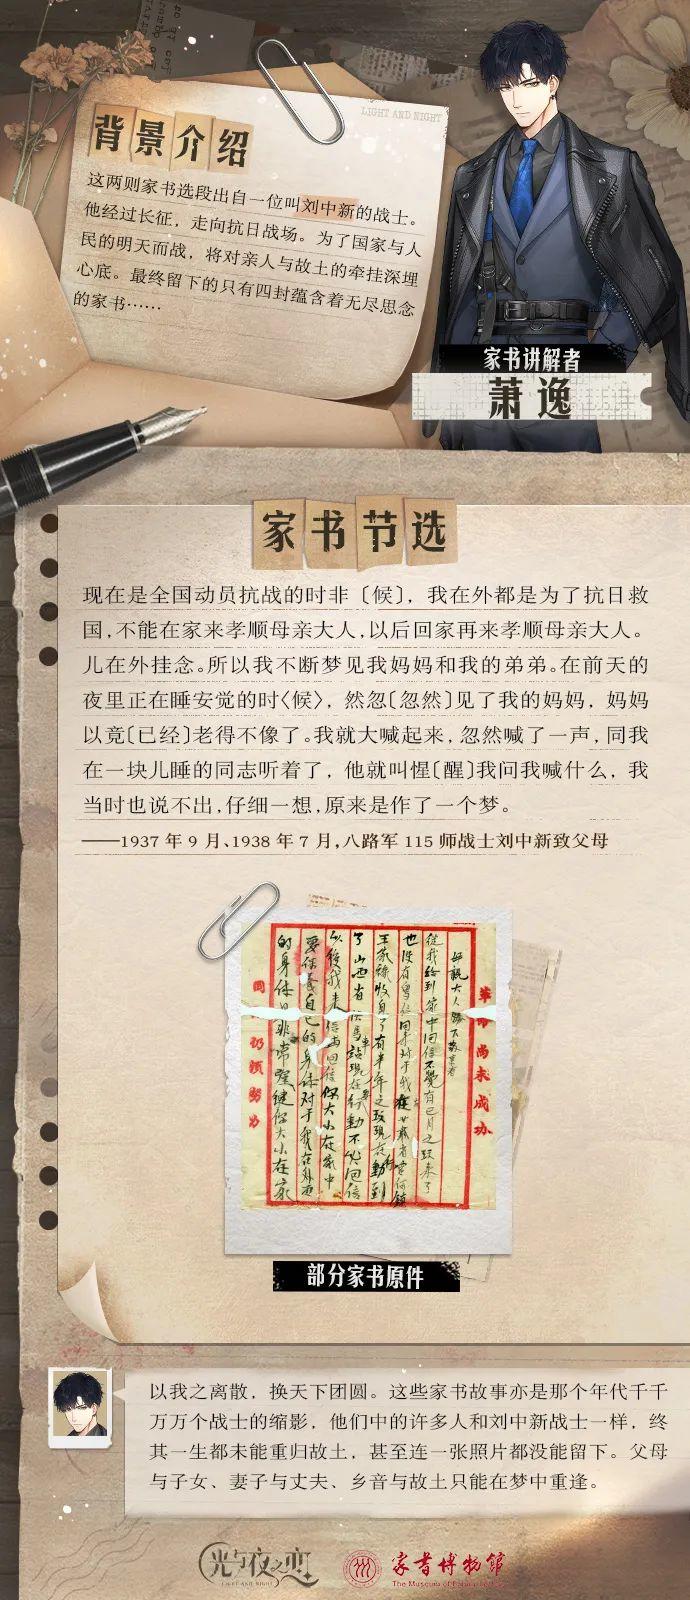 LIGHT AND NIGHT
背景介绍
这两则家书选段出自一位叫刘中新的战士。
他经过长征，走向抗日战场。为了国家与人
民的明天而战，将对亲人与故土的牵挂深埋
心底。最终留下的只有四封蕴含着无尽思念
的家书……
家书讲解者
萧逸
家书节选
现在是全国动员抗战的时非〔候〕，我在外都是为了抗日救
国，不能在家来孝顺母亲大人，以后回家再来孝顺母亲大人。
儿在外挂念。所以我不断梦见我妈妈和我的弟弟。在前天的
夜里正在睡安觉的时〈候〉，然忽〔忽然〕见了我的妈妈，妈妈
以竟〔已经〕老得不像了。我就大喊起来，忽然喊了一声，同我
在一块儿睡的同志听着了，他就叫惺〔醒〕我问我喊什么，我
当时也说不出，仔细一想，原来是作了一个梦。
——1937 年 9 月、1938 年 7 月，八路军 115 师战士刘中新致父母
革命尚未成功
母亲大人膝下敬禀者
部分家书原件
以我之离散，换天下团圆。这些家书故事亦是那个年代千千
万万个战士的缩影，他们中的许多人和刘中新战士一样，终
其一生都未能重归故土，甚至连一张照片都没能留下。父母
与子女、妻子与丈夫、乡音与故土只能在梦中重逢。
光与夜之恋
LIGHT AND NIGHT
家书博物馆
The Museum of Family Letters